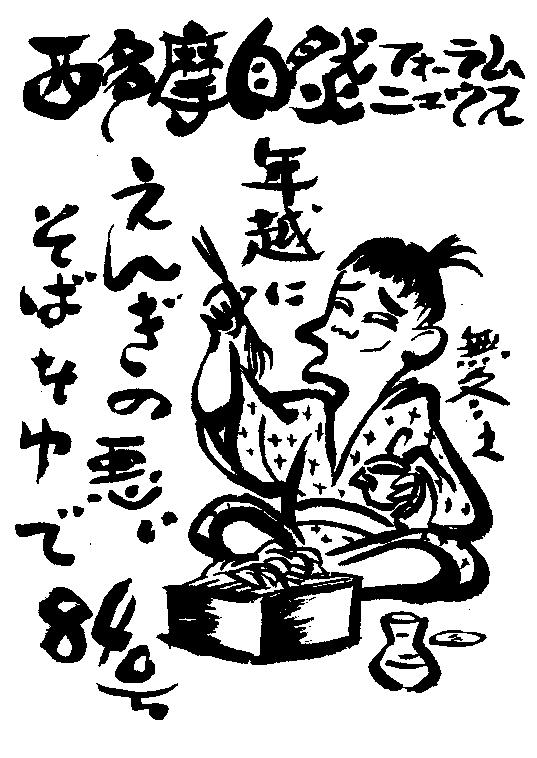 西多摩自然フォーラム
ニュウス
年越に
えんぎの悪い
そばそゆで
84号